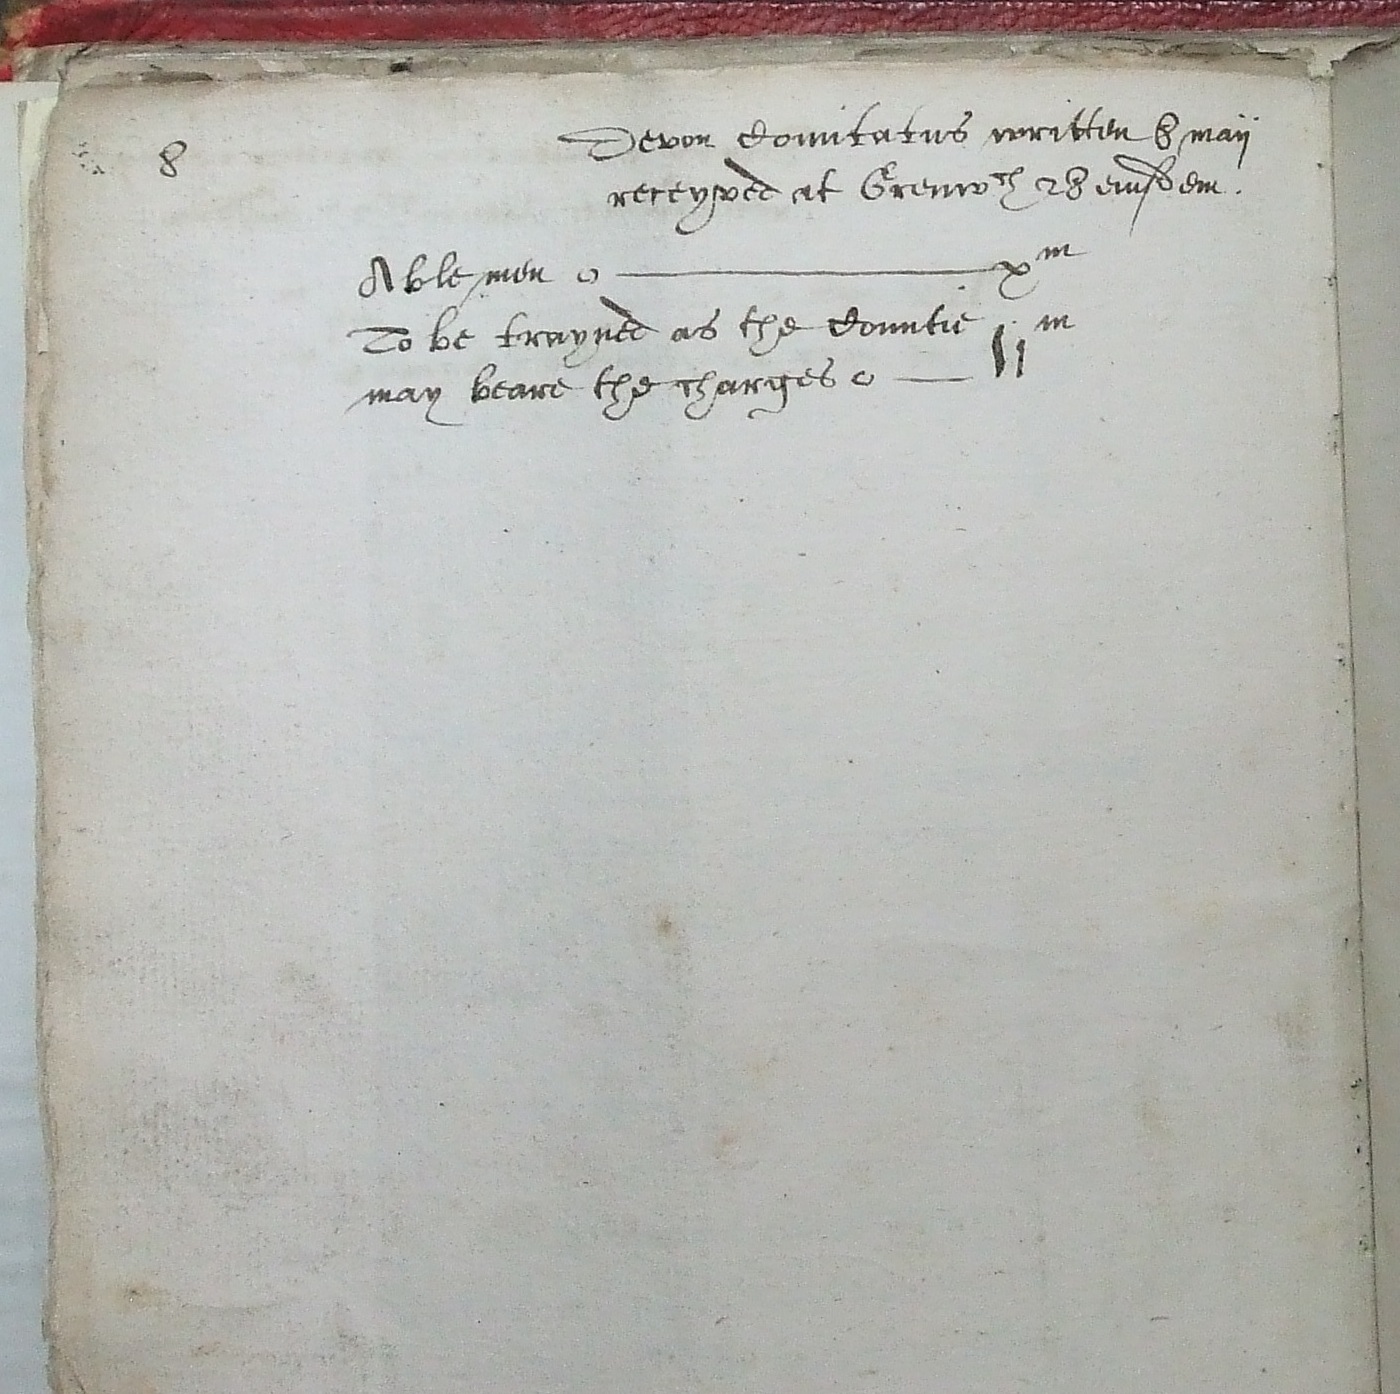 8
Devon Comitatus written 8 maij
receyved at Grenwch 28 eiusdem.
Able men o — xm
To be trayned as the Countie
may beare the charges o — ijm